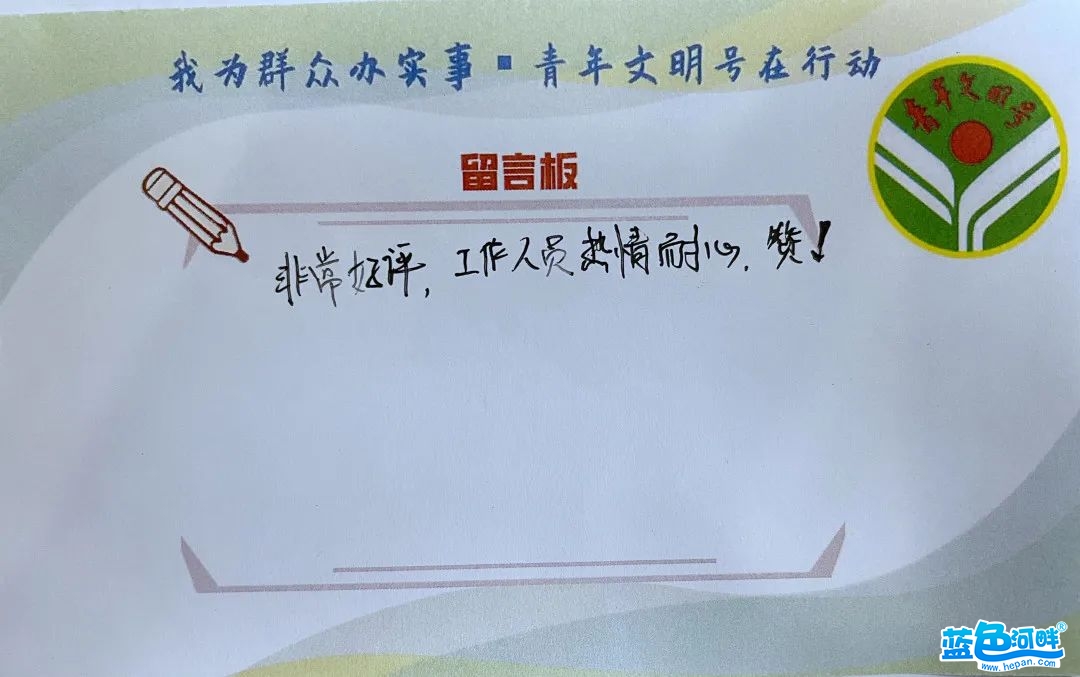 我为群众办实事▪青年文明号在行动
青年文明号
留言板
非常好评，工作人员热情耐心，赞！
蓝色河畔®
www.hepan.com